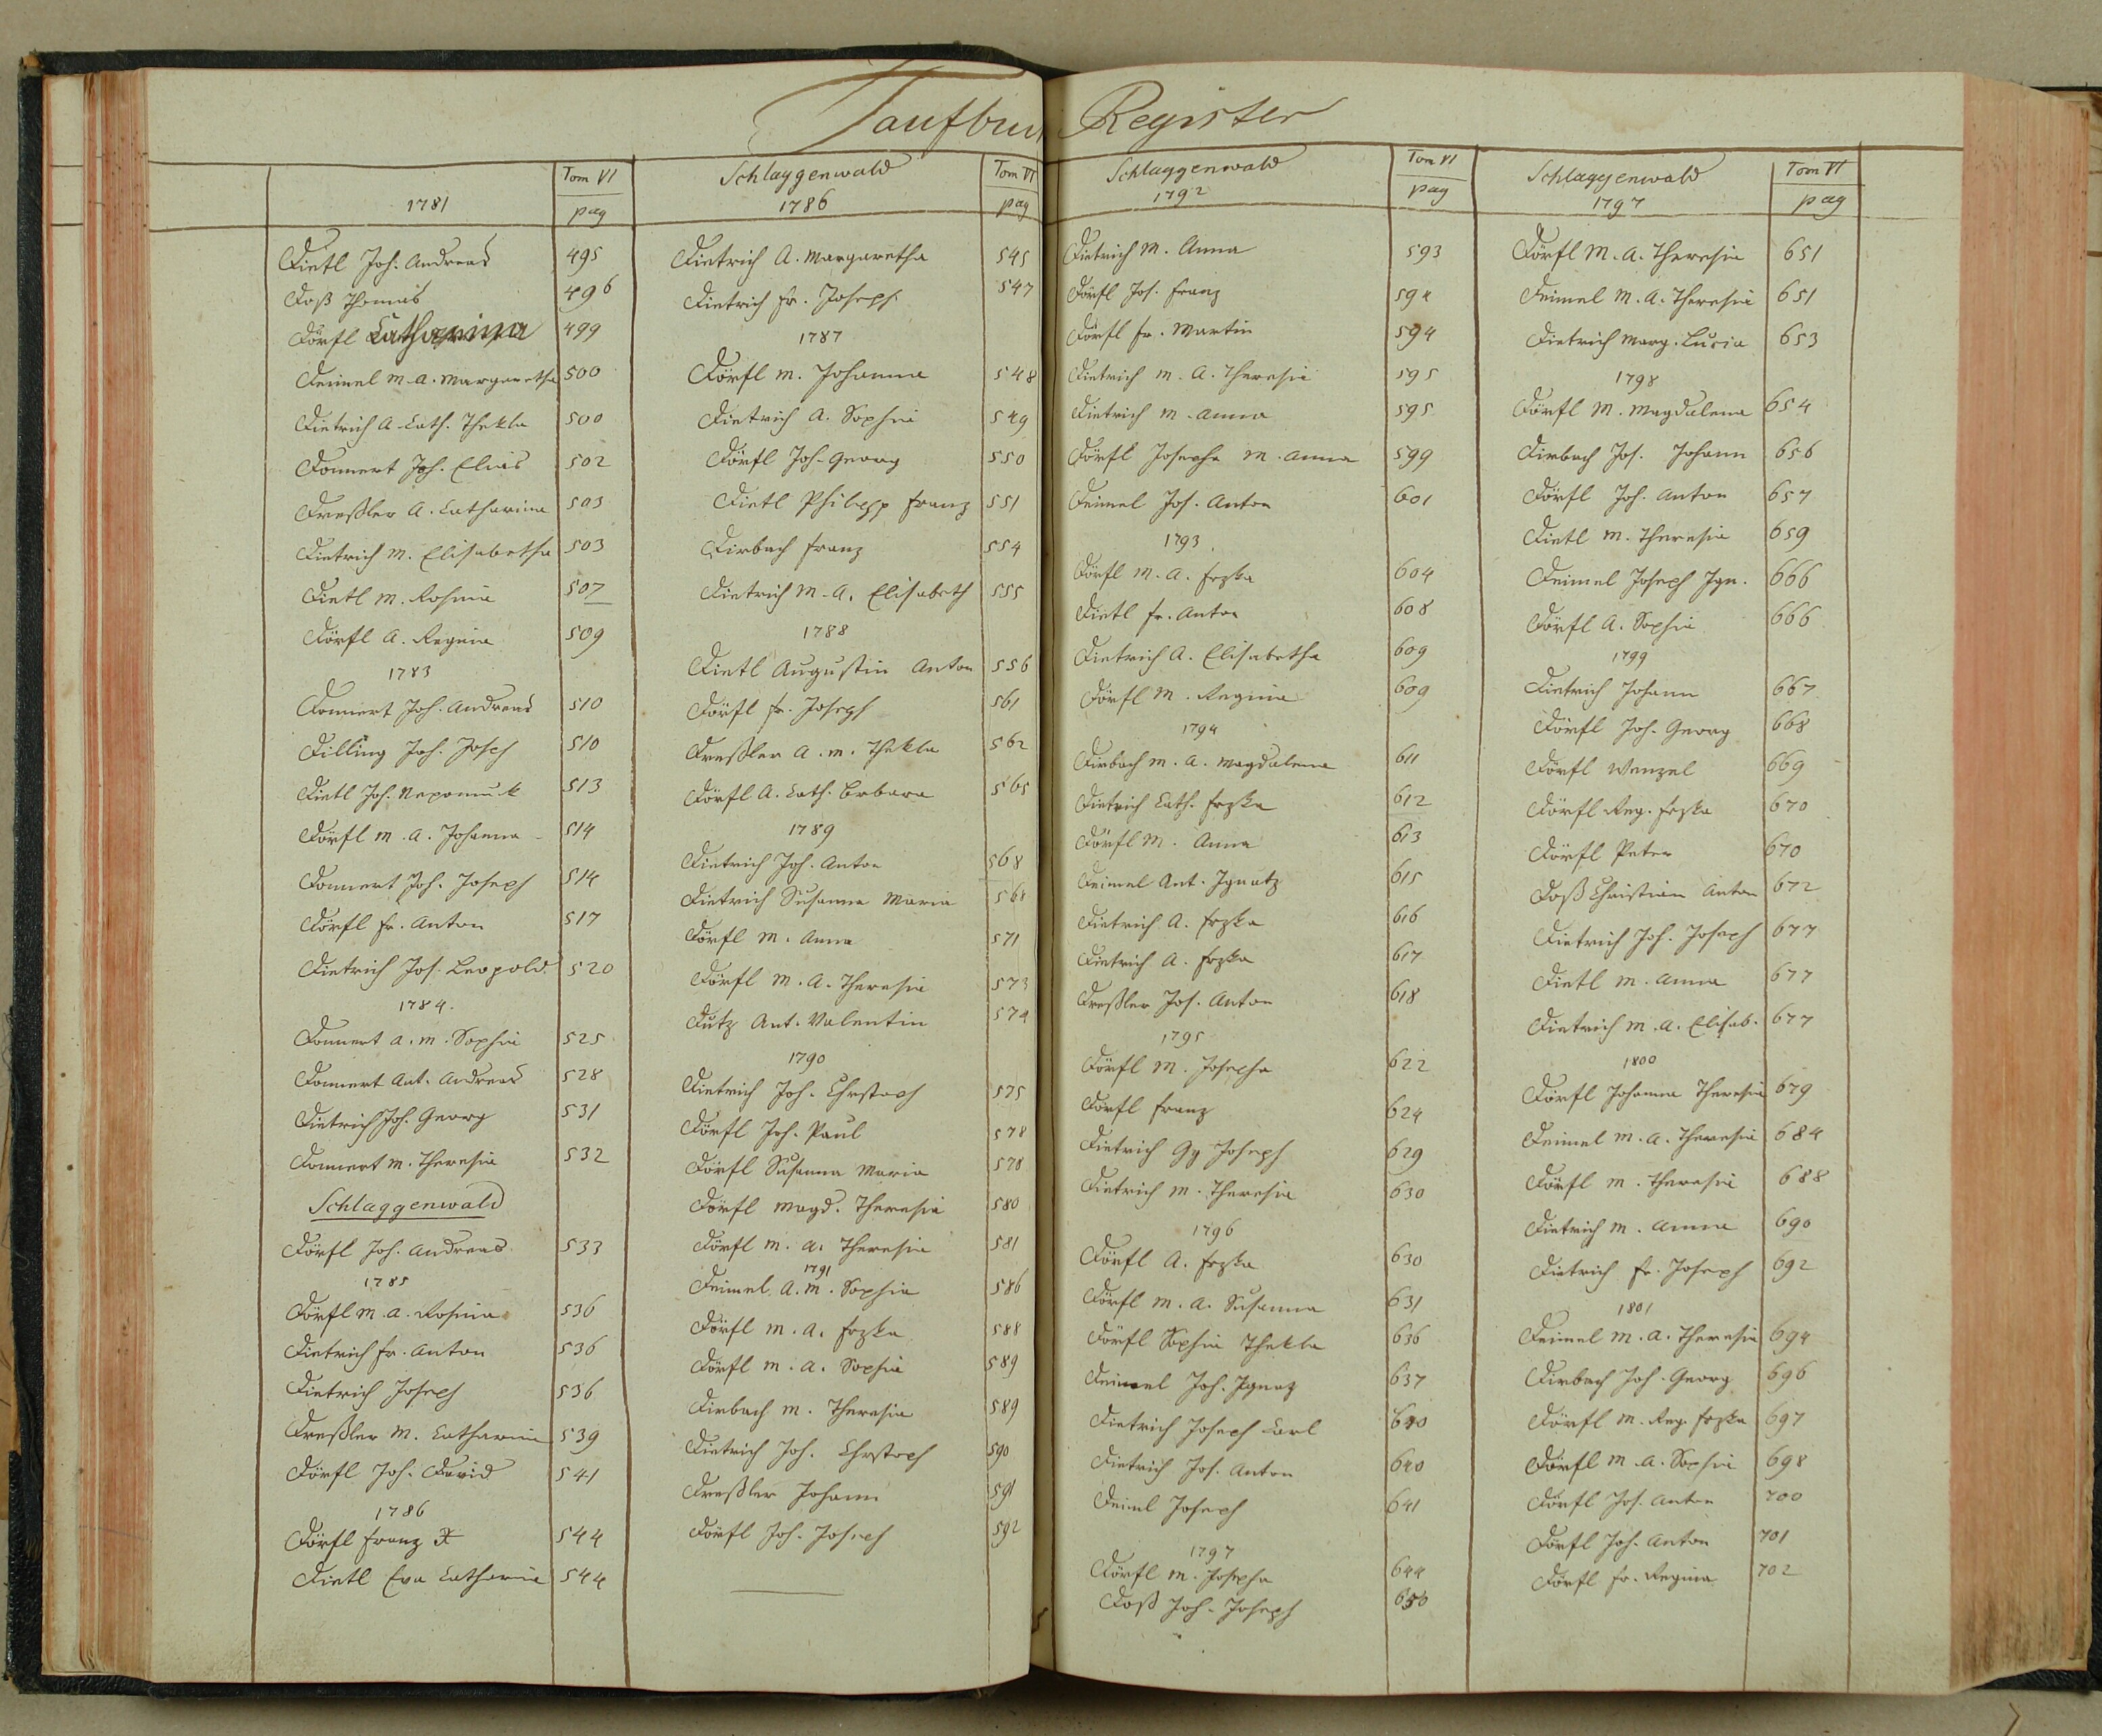 Taufbuch Register
Tom VI
1781
pag
Dietl Joh. Andreas 495
Doß Thomas 496
Dörfl Catharina 499
Deimel M. A. Margaretha 500
Dietrich A. Cath. Thekla 500
Donnert Joh. Elias 502
Dreßler A. Catharina 503
Dietrich M. Elisabetha 503
Dietl M. Rosina 507
Dörfl A. Regina 509
1783
Donnert Joh. Andreas 510
Dilling Joh. Joseph 510
Dietl Joh. Nepomuck 513
Dörfl M. A. Johanna 514
Donnert Joh. Joseph 514
Dörfl Fr. Anton 517
Dietrich Jos. Leopold 520
1784.
Donnert A. M. Sophia 525
Donnert Ant. Andreas 528
Dietrich Joh. Georg 531
Donnert M. Theresia 532
Schlaggenwald
Dörfl Joh. Andreas 533
1785
Dörfl M. A. Rosina 536
Dietrich Fr. Anton 536
Dietrich Joseph 536
Dreßler M. Catharina 539
Dörfl Joh. David 541
1786
Dörfl Franz X 544
Dietl Eva Catharina 544
Schlaggenwald Tom VI
1786 pag
Dietrich A. Margaretha 545
Dietrich Fr. Joseph 547
1787
Dörfl M. Johanna 548
Dietrich A. Sophia 549
Dörfl Joh. Georg 550
Dietl Philipp Franz 551
Dirbach Franz 554
Dietrich M. A. Elisabeth 555
1788
Dietl Augustin Anton 556
Dörfl Fr. Joseph 561
Dreßler A. M. Thekla 562
Dörfl A. Cath. Brbara 565
1789
Dietrich Joh. Anton 568
Dietrich Susanna Maria 568
Dörfl M. Anna 571
Dörfl M. A. Theresia 573
Dutz Ant. Valentin 574
1790
Dietrich Joh. Chrstoph 575
Dörfl Joh. Paul 578
Dörfl Susanna Maria 578
Dörfl Magd. Theresia 580
Dörfl M. A. Theresia 581
1791
Deimel A. M. Sophia 586
Dörfl M. A. Frzka 588
Dörfl M. A. Sophia 589
Dirbach M. Theresia 589
Dietrich Joh. Chrstoph 590
Dreßler Johann 591
Dörfl Joh. Joseph 592
Schlaggenwald Tom VI
1792 pag
Dietrich M. Anna 593
Dörfl Jos. Franz 594
Dörfl Fr. Martin 594
Dietrich M. A. Theresia 595
Dietrich M. Anna 595
Dörfl Josepha M. Anna 599
Deimel Jos. Anton 601
1793
Dörfl M. A. Frzka 604
Dietl Fr. Anton 608
Dietrich A. Elisabetha 609
Dörfl M. Regina 609
1794
Dirbach M. A. Magdalena 611
Dietrich Cath. Frzka 612
Dörfl M. Anna 613
Deimel Ant. Ignatz 615
Dietrich A. Frzka 616
Dietrich A. Frzka 617
Dreßler Jos. Anton 618
1795
Dörfl M. Josepha 622
Dörfl Franz 624
Dietrich Gg Joseph 629
Dietrich M. Theresia 630
1796
Dörfl A. Frzka 630
Dörfl M. A. Susanna 631
Dörfl Sophia Thekla 636
Deimel Joh. Ignatz 637
Dietrich Joseph Carl 640
Dietrich Jos. Anton 640
Deiml Joseph 641
1797
Dörfl M. Josepha 644
Doß Joh. Joseph 650
Schlaggenwald Tom VI
1797 pag
Dörfl M. A. Theresia 651
Deimel M. A. Theresia 651
Dietrich Marg. Lucia 653
1798
Dörfl M. Magdalena 654
Dirbach Jos. Johann 656
Dörfl Joh. Anton 657
Dietl M. Theresia 659
Deimel Joseph Ign. 666
Dörfl A. Sophia 666
1799
Dietrich Johann 667
Dörfl Joh. Georg 668
Dörfl Wenzel 669
Dörfl Reg. Frzka 670
Dörfl Peter 670
Doß Christian Anton 672
Dietrich Joh. Joseph 677
Dietl M. Anna 677
Dietrich M. A. Elisab. 677
1800
Dörfl Johanna Theresia 679
Deimel M. A. Theresia 684
Dörfl M. Theresia 688
Dietrich M. Anna 690
Dietrich Fr. Joseph 692
1801
Deimel M. A. Theresia 694
Dirbach Joh. Georg 696
Dörfl M. Reg. Frzka 697
Dörfl M. A. Sophia 698
Dörfl Jos. Anton 700
Dörfl Joh. Anton 701
Dörfl Fr. Regina 702